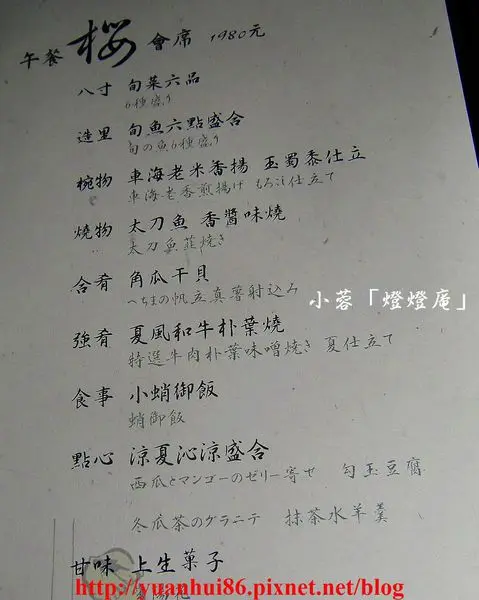 午餐 櫻 會席 1980元
八寸 旬菜六品
6種盛り
造里 旬魚六點盛合
旬の魚6種盛り
椀物 車海老米香揚 玉蜀黍仕立
車海老香煎揚げ もろこし仕立て
燒物 太刀魚 香醬味燒
太刀魚韮焼き
合肴 角瓜干貝
へちまの帆立真薯射込み
小蓉「燈燈庵」
強肴 夏風和牛朴葉燒
特選牛肉朴葉味噌焼き 夏仕立て
食事 小蛸御飯
蛸御飯
點心 涼夏沁涼盛合
西瓜とマンゴーのゼリー寄せ 勾玉豆腐
冬瓜茶のグラニテ 抹茶水羊羹
甘味 上生菓子
http://yuanhui86.pixnet.net/blog